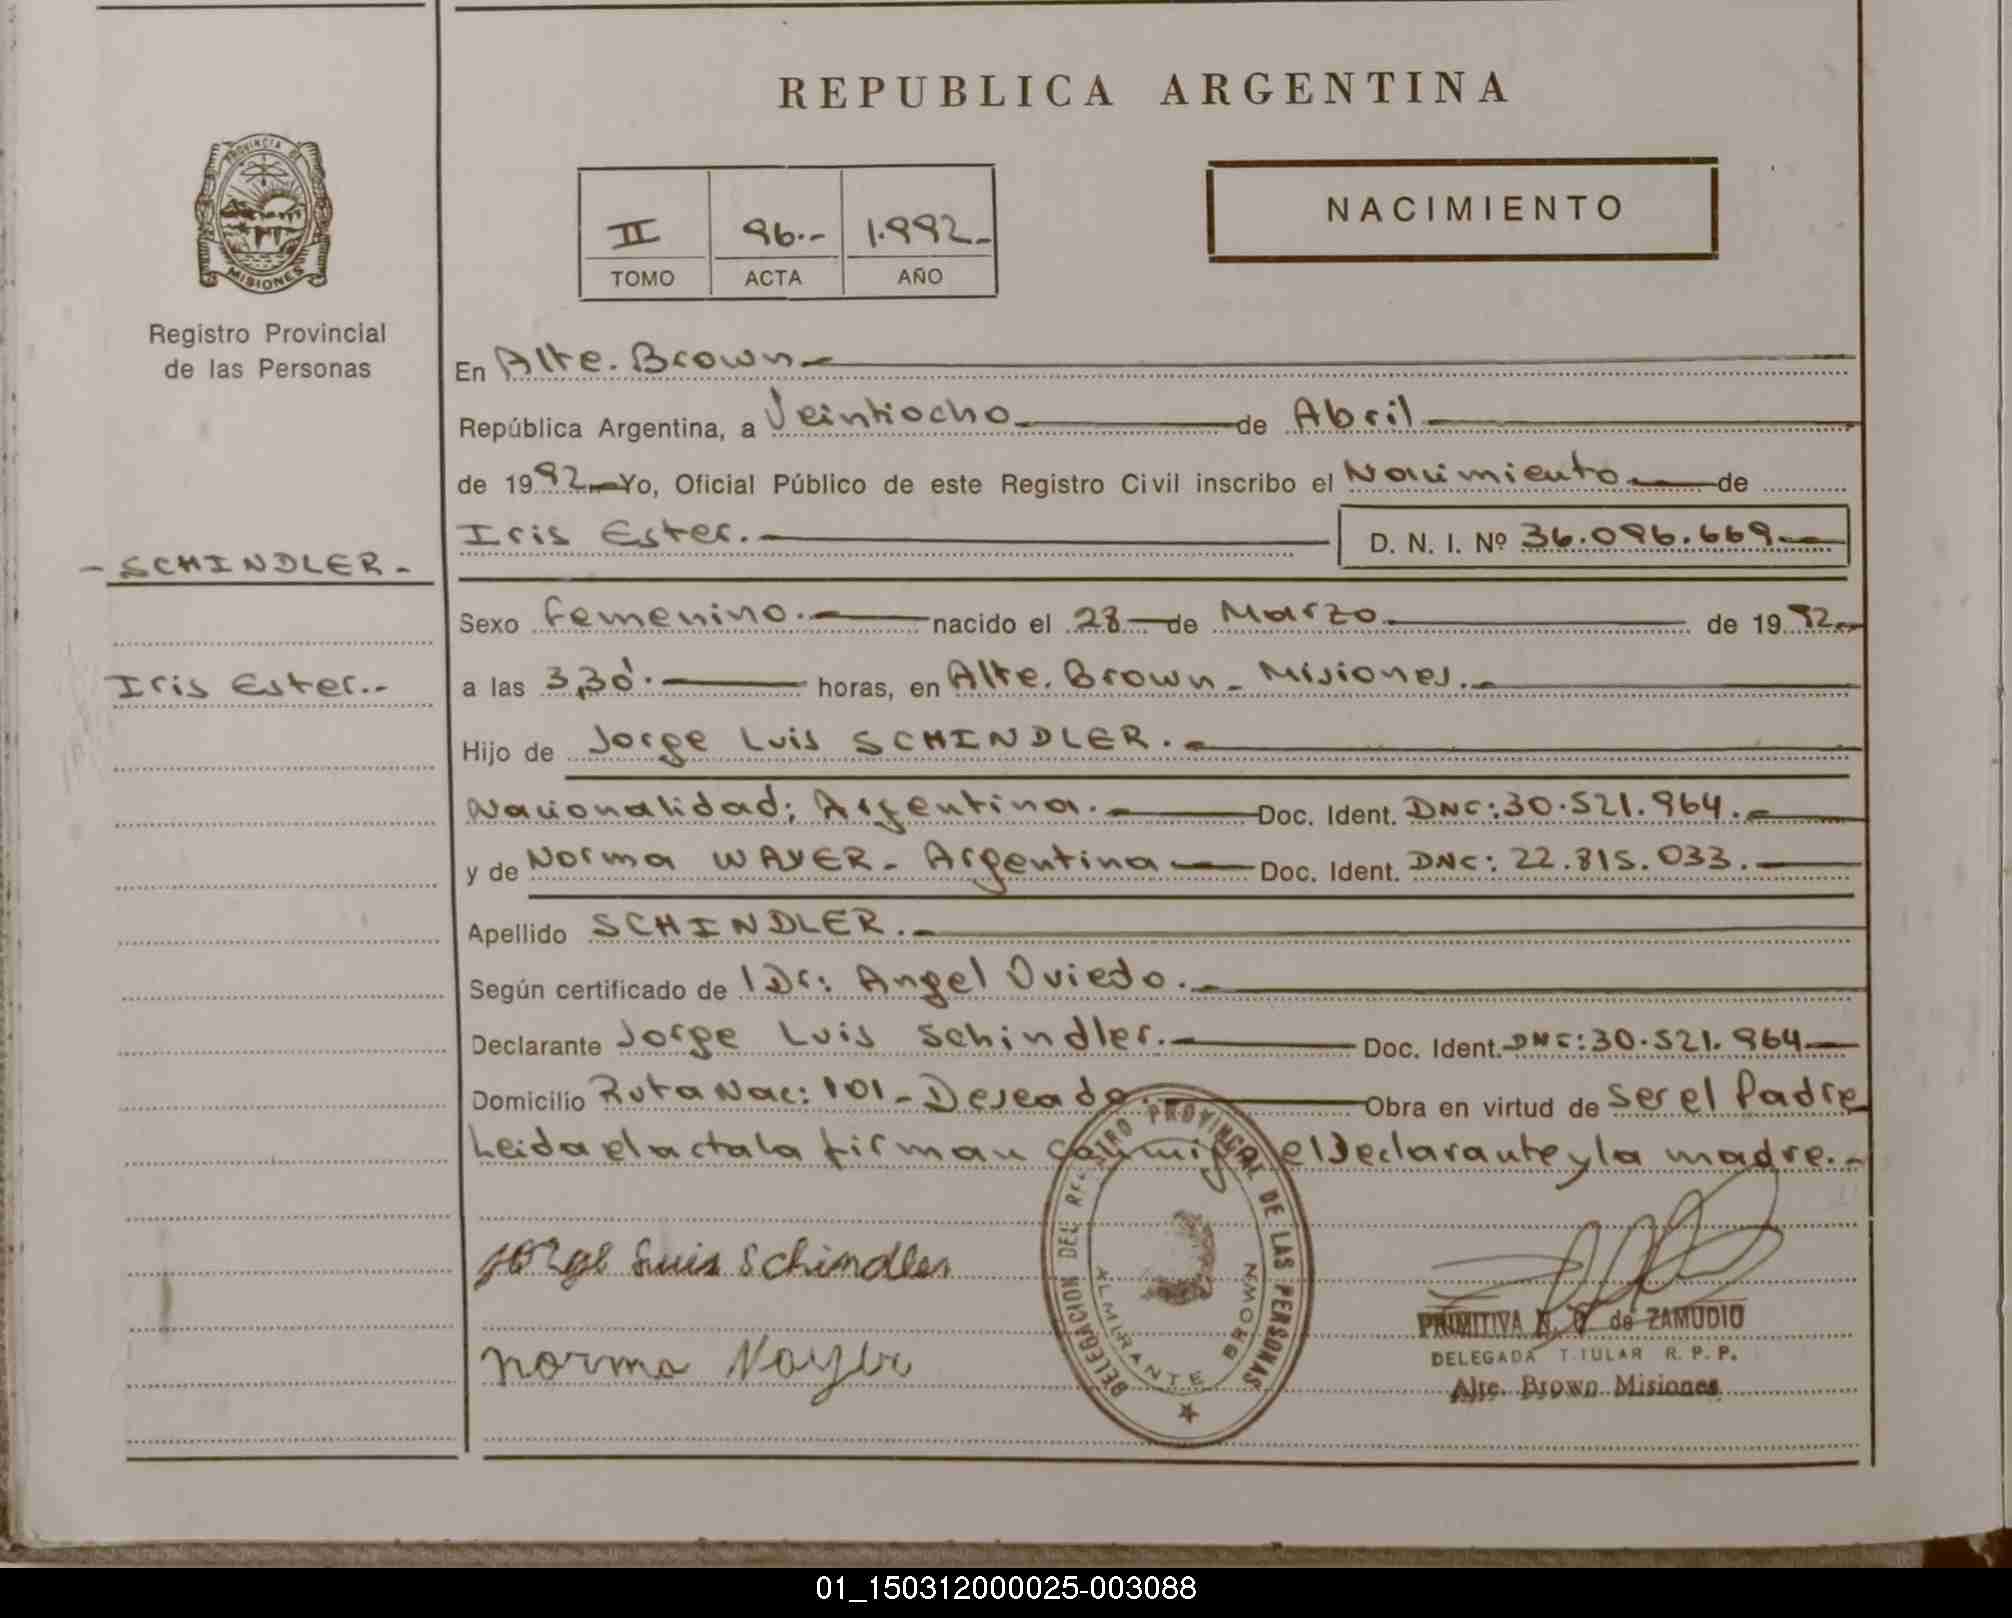 REPUBLICA ARGENTINA
PROVINCIA DE
MISIONES
Registro Provincial
de las Personas
II 96.- 1.992-
TOMO ACTA AÑO
NACIMIENTO
En Alte. Brown.-
República Argentina, a Veintiocho de Abril
de 1992 Yo, Oficial Público de este Registro Civil inscribo el Nacimiento de
Iris Ester.- D. N. I. Nº 36.096.669
- SCHINDLER -
Sexo femenino.- nacido el 28 de Marzo de 1992
Iris Ester.-
a las 3,30'.- horas, en Alte. Brown - Misiones.-
Hijo de Jorge Luis SCHINDLER.-
Nacionalidad; Argentina.- Doc. Ident. DNC: 30.521.964.-
y de Norma WAYER - Argentina Doc. Ident. DNC: 22.815.033.-
Apellido SCHINDLER.-
Según certificado de l Dr: Angel Oviedo.-
Declarante Jorge Luis Schindler.- Doc. Ident. DNC: 30.521.964
Domicilio Ruta Nac: 101 - Deseado.- Obra en virtud de ser el Padre
Leida el acta la firman conmigo el Declarante y la madre.-
DELEGACION DEL REGISTRO PROVINCIAL DE LAS PERSONAS
ALMIRANTE BROWN
Jorge Luis Schindler
PRIMITIVA de ZAMUDIO
DELEGADA TITULAR R. P. P.
Alte. Brown Misiones
norma Vayer
01_150312000025-003088